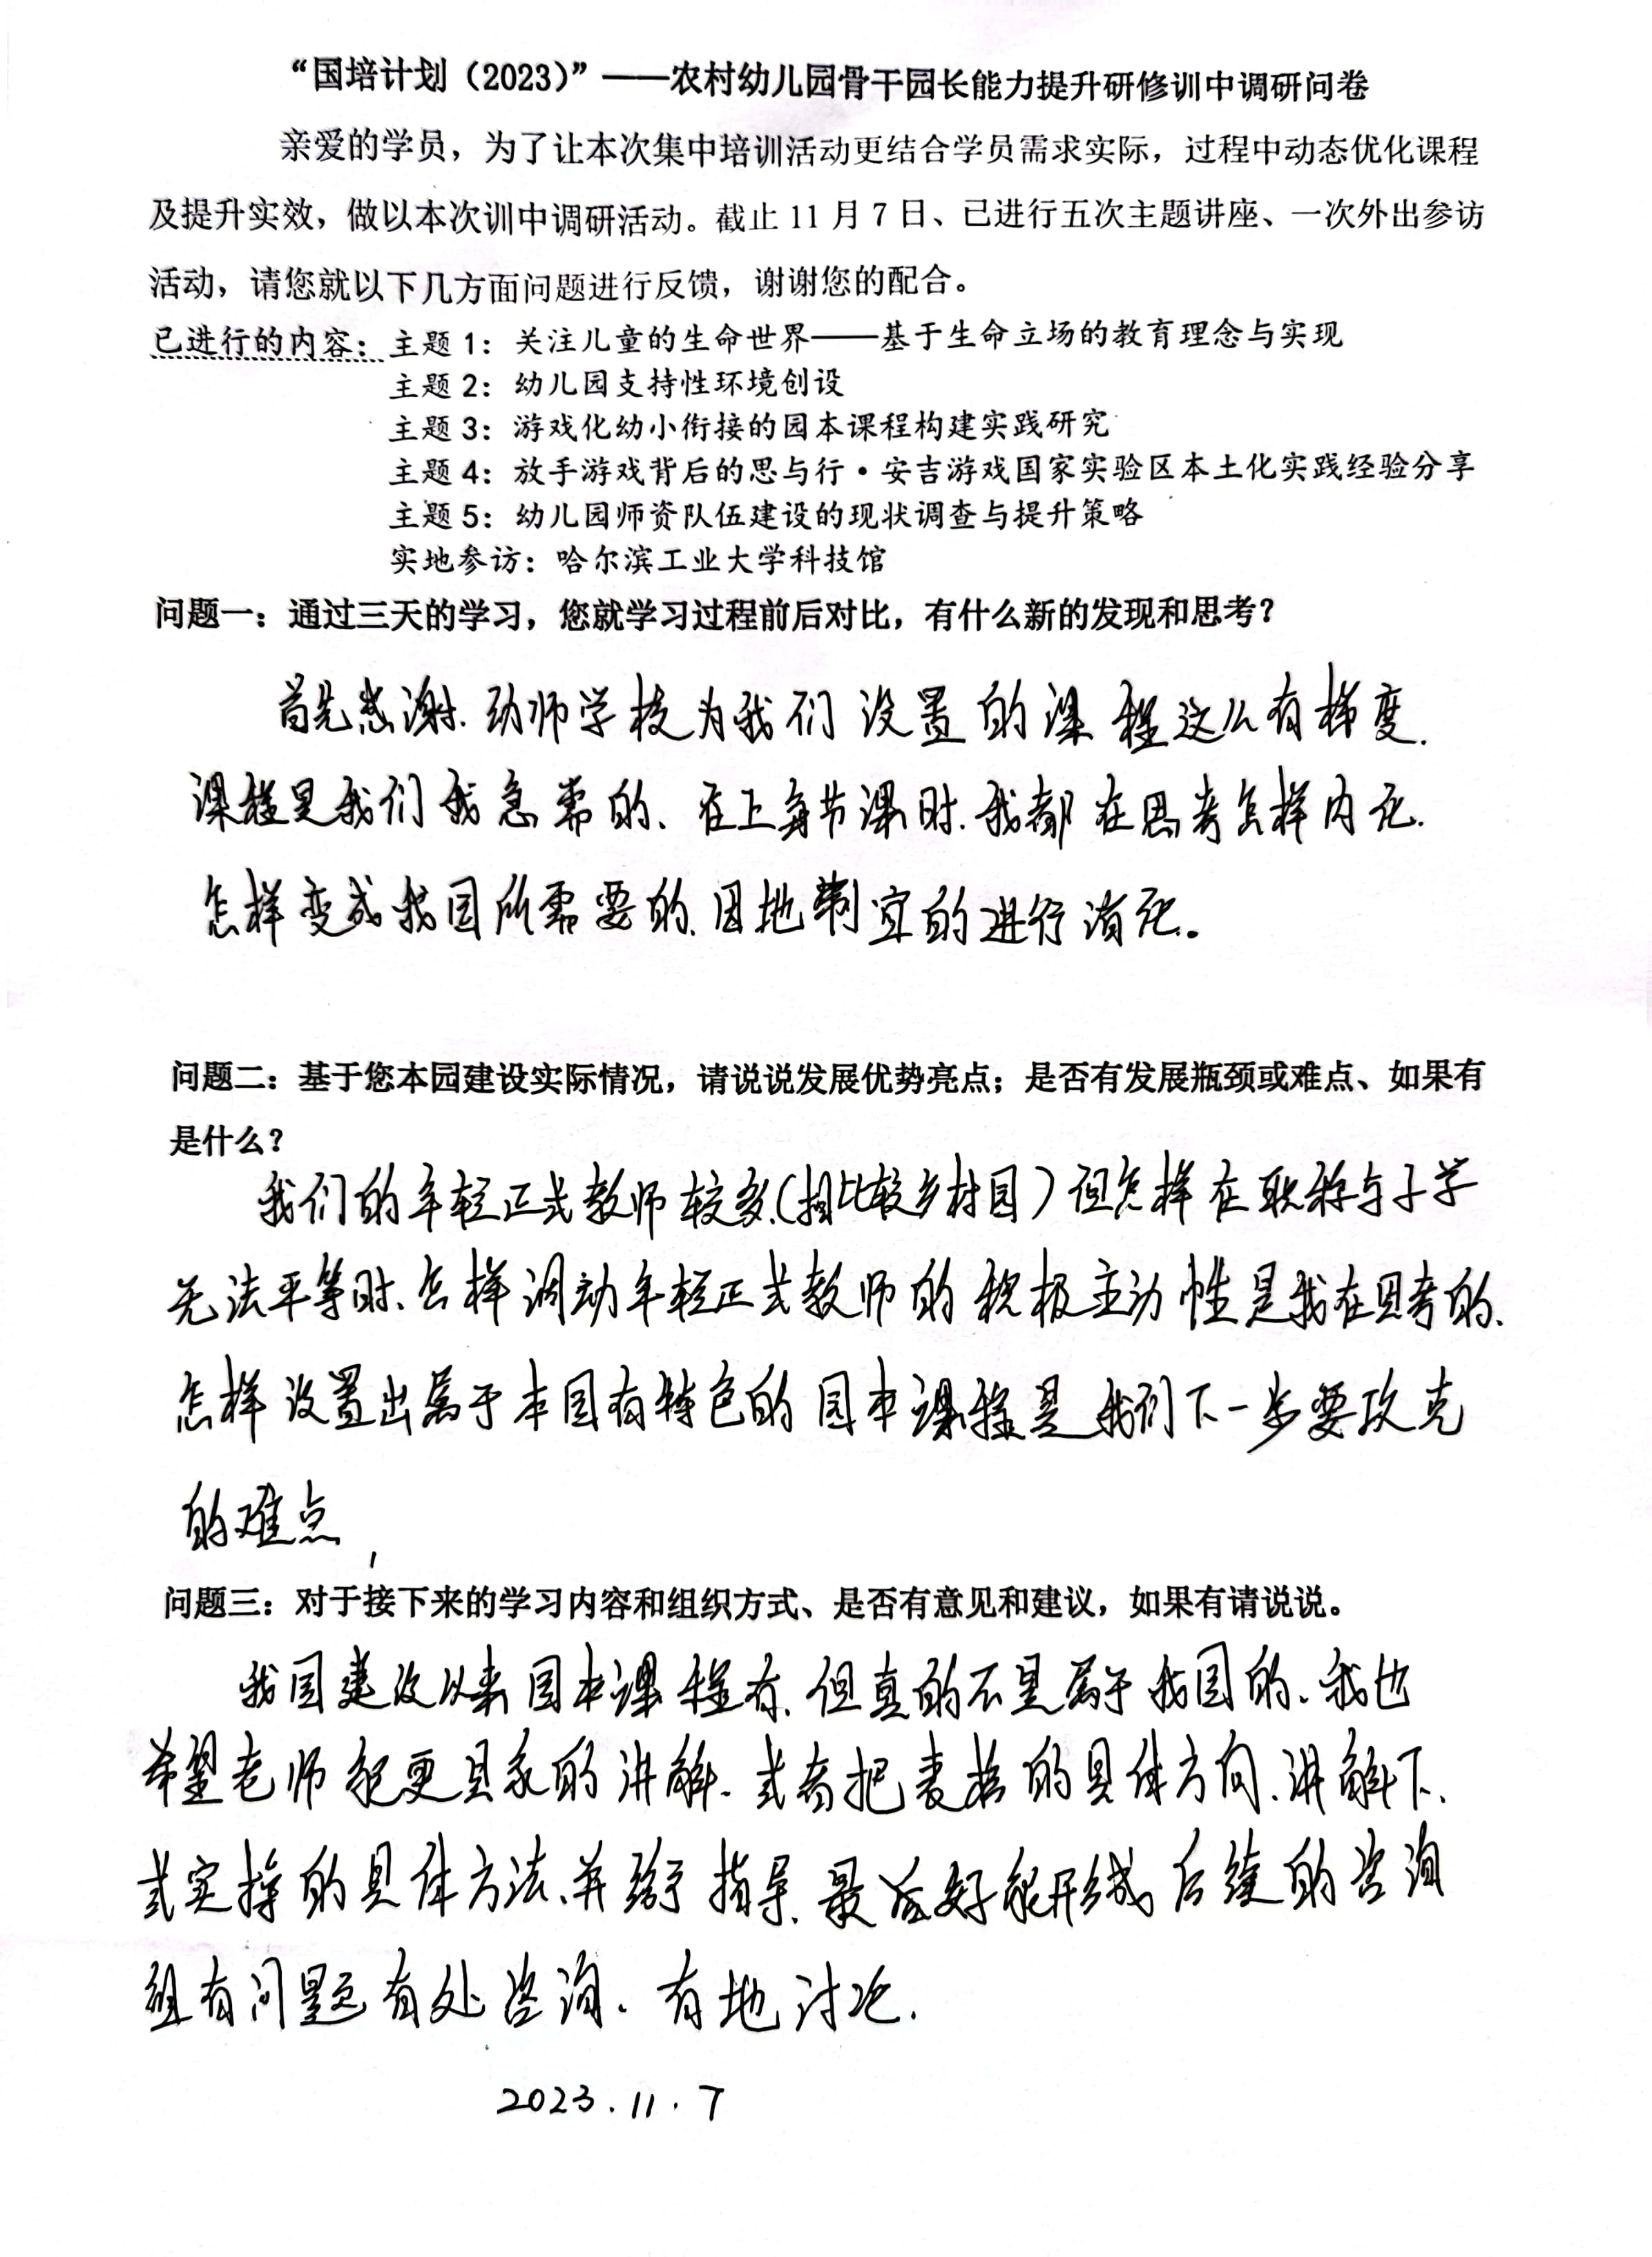 “国培计划（2023）”——农村幼儿园骨干园长能力提升研修训中调研问卷
亲爱的学员，为了让本次集中培训活动更结合学员需求实际，过程中动态优化课程
及提升实效，做以本次训中调研活动。截止 11 月 7 日、已进行五次主题讲座、一次外出参访
活动，请您就以下几方面问题进行反馈，谢谢您的配合。
已进行的内容：主题 1：关注儿童的生命世界——基于生命立场的教育理念与实现
主题 2：幼儿园支持性环境创设
主题 3：游戏化幼小衔接的园本课程构建实践研究
主题 4：放手游戏背后的思与行·安吉游戏国家实验区本土化实践经验分享
主题 5：幼儿园师资队伍建设的现状调查与提升策略
实地参访：哈尔滨工业大学科技馆
问题一：通过三天的学习，您就学习过程前后对比，有什么新的发现和思考？
首先感谢.幼师学校为我们设置的课程这么有梯度.
课程是我们我急需的、在上每节课时.我都在思考怎样内化.
怎样变成我园所需要的.因地制宜的进行消化。
问题二：基于您本园建设实际情况，请说说发展优势亮点；是否有发展瓶颈或难点、如果有
是什么？
我们的年轻正式教师较多.(相比较乡村园）但怎样在职称与
无法平等时、怎样调动年轻正式教师的积极主动性是我在思考的.
怎样设置出属于本园有特色的园本课程是我们下一步要攻克
的难点
问题三：对于接下来的学习内容和组织方式、是否有意见和建议，如果有请说说。
我园建设以来园本课程有.但真的不是属于我园的.我也
希望老师能更具象的讲解.或者把表格的具体方向.讲解下.
或实操的具体方法、并给予指导.最后好能形成后续的咨询
组有问题有处咨询.有地讨论.
2023.11.7